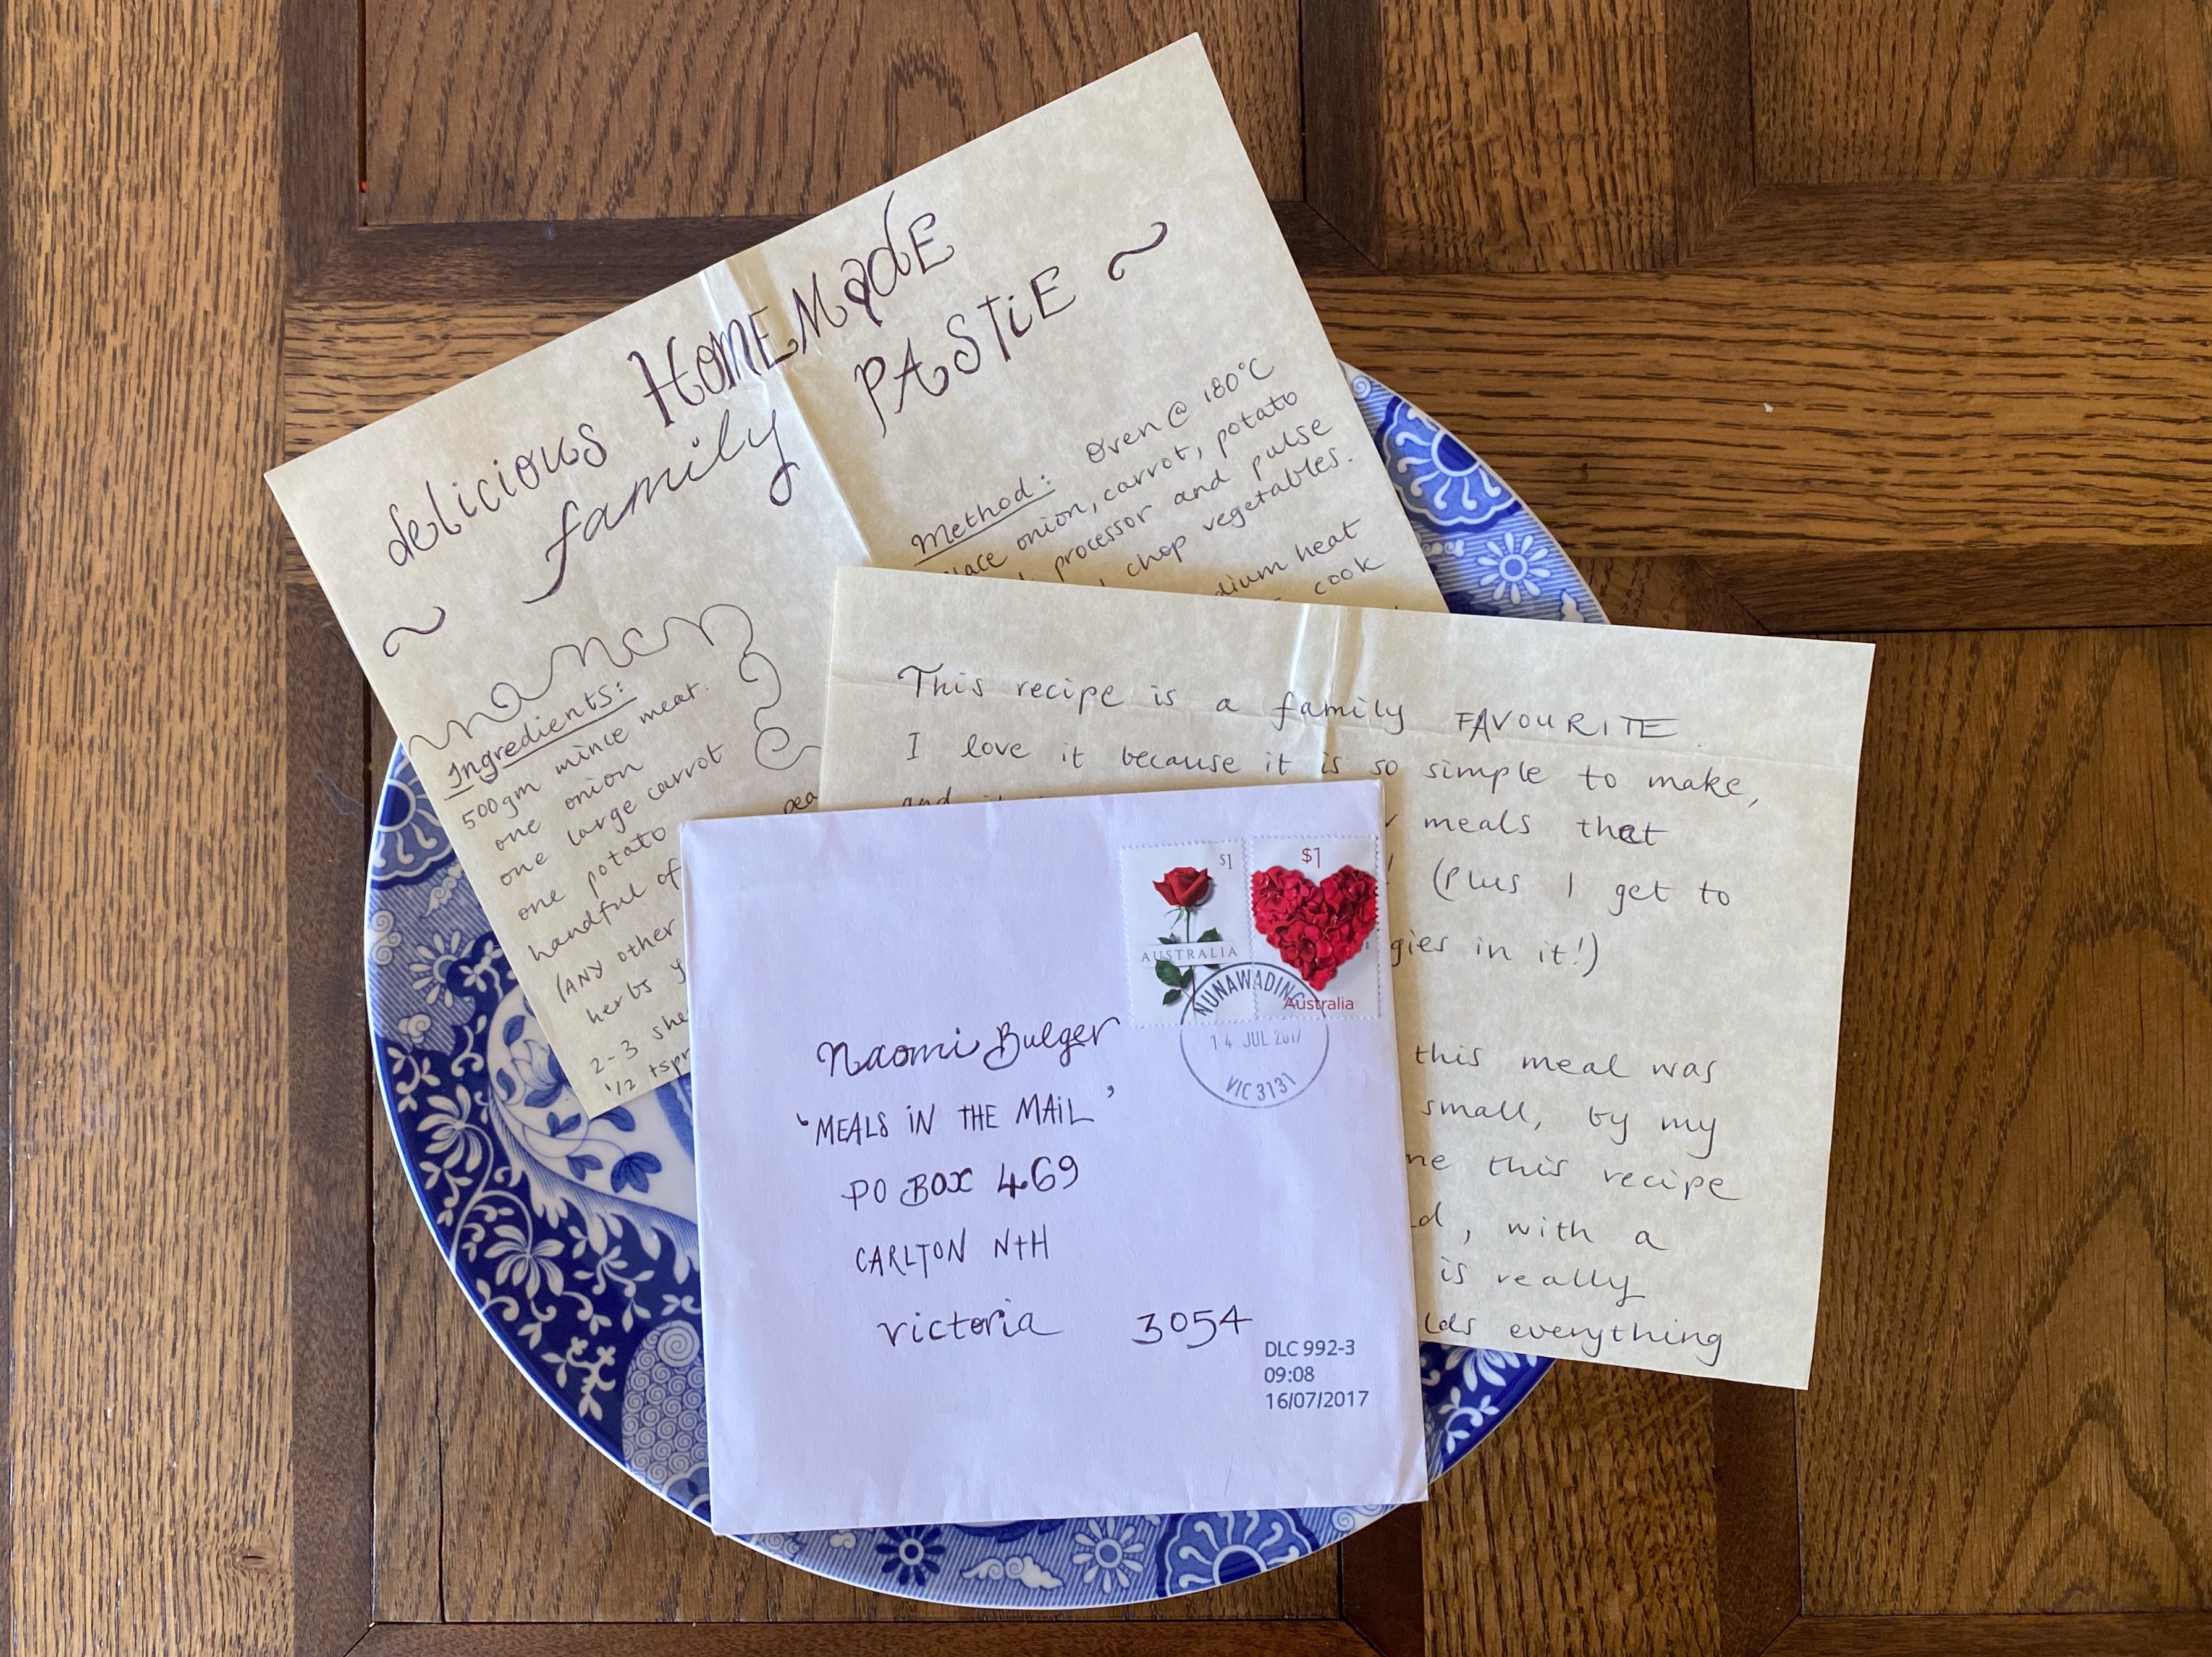 delicious HOMEMADE
~ family PASTIE ~
Ingredients:
500gm mince meat.
one onion
one large carrot
one potato
handful of pea
(ANY other
herbs y
2-3 she
1/2 tspn
Method: Oven @ 180°C
lace onion, carrot, potato
processor and pulse
chop vegetables.
dium heat
cook
This recipe is a family FAVOURITE.
I love it because it is so simple to make,
and
meals that
! (Plus I get to
gies in it!)
this meal was
small, by my
me this recipe
d, with a
is really
lds everything
$1
AUSTRALIA
$1
Australia
NUNAWADING
14 JUL 2017
VIC 3131
Naomi Bulger
'MEALS IN THE MAIL'
PO BOX 469
CARLTON NTH
victoria 3054
DLC 992-3
09:08
16/07/2017